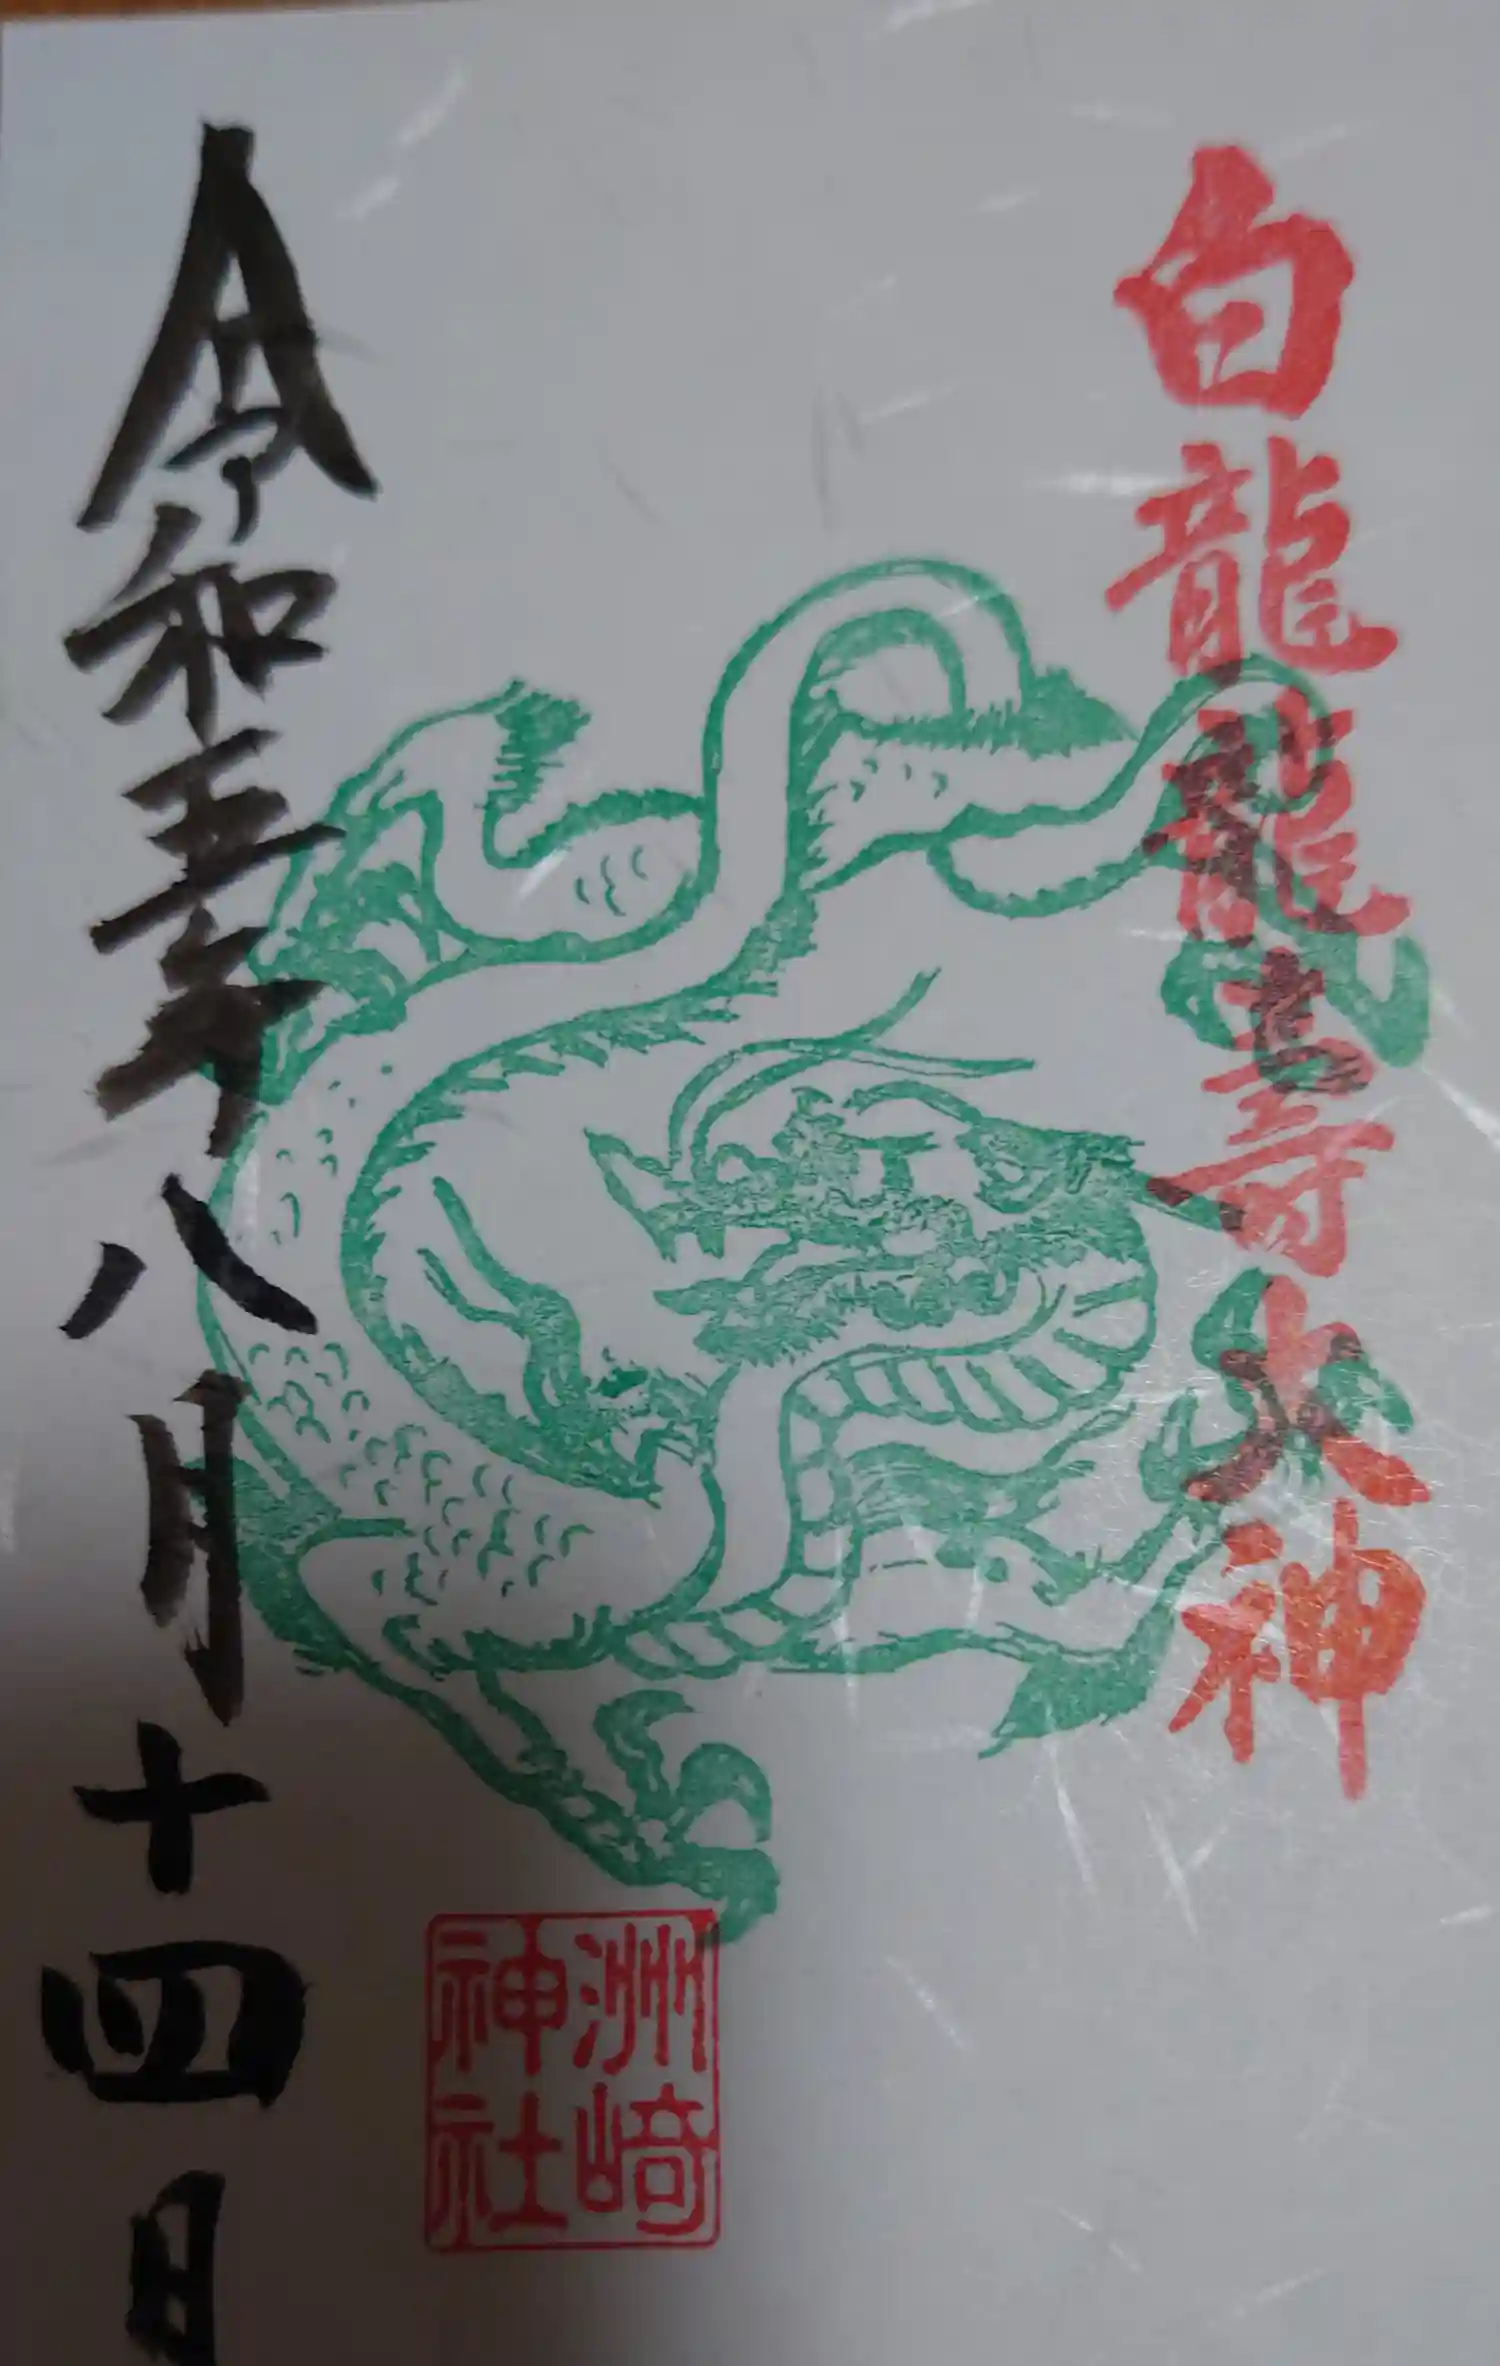 白龍龍壽大神
洲崎神社
令和五年八月十四日